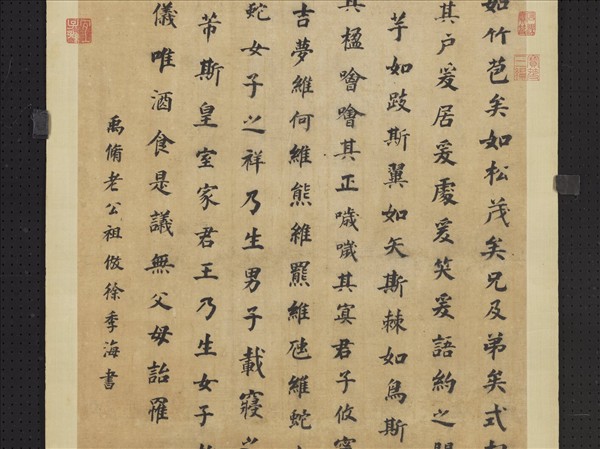 如竹苞矣如松茂矣兄及弟矣式
其户爰居爰處爰笑爰語約之
芋如跂斯翼如矢斯棘如鳥斯
其楹噲噲其正噦噦其冥君子攸寧
吉夢維何維熊維羆維虺維蛇
蛇女子之祥乃生男子載寢之
芾斯皇室家君王乃生女子
儀唯酒食是議無父母詒罹
禹脩老公祖倣徐季海書